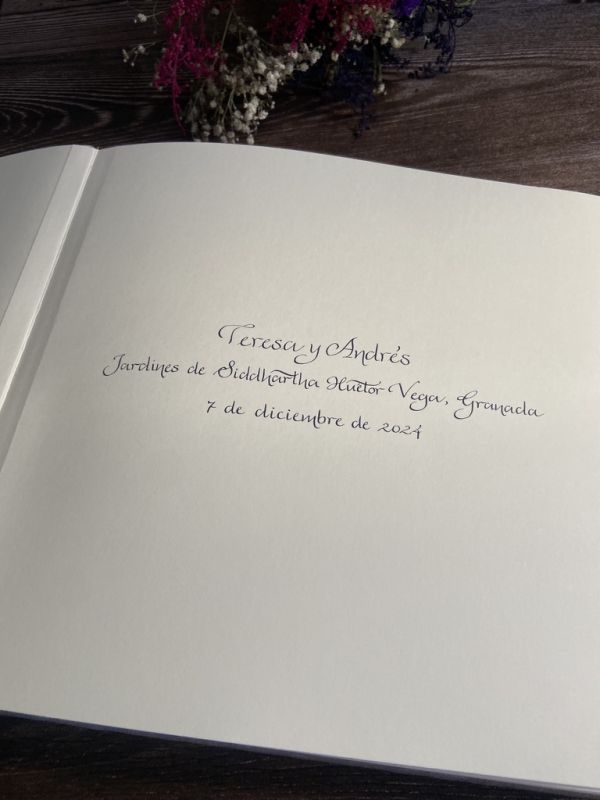 Teresa y Andrés
Jardines de Siddhartha Huetor Vega, Granada
7 de diciembre de 2024